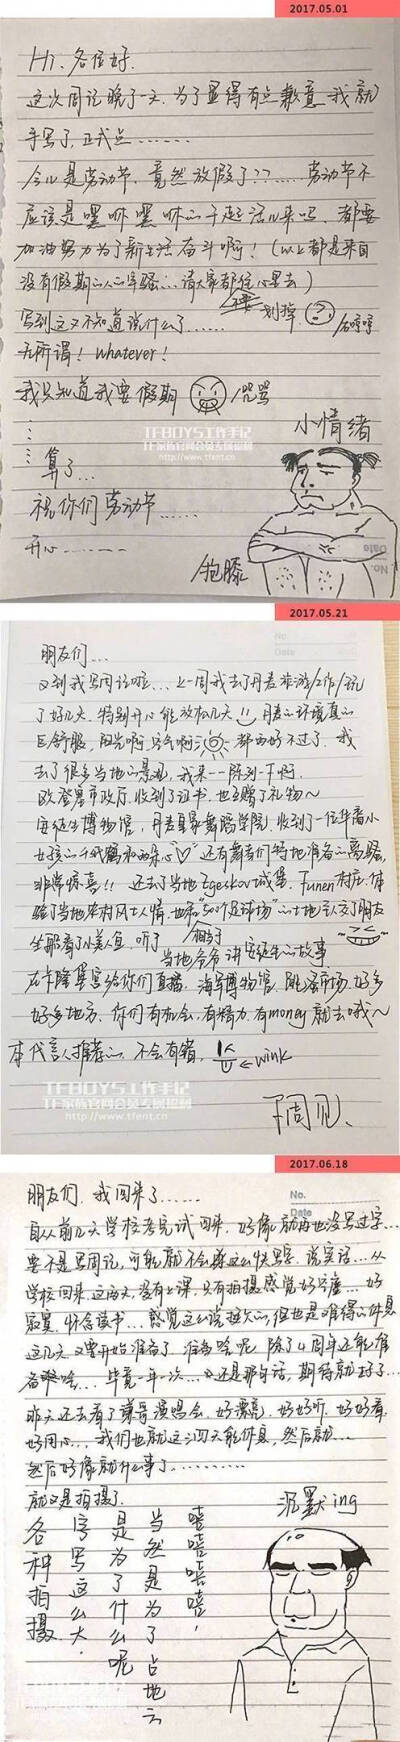 2017.05.01
Hi. 各位好.
这次周记晚了一天, 为了显得有点歉意 我就
手写了, 正式点......
今儿是劳动节, 竟然放假了??......劳动节不
应该是嘿咻嘿咻的干起活儿来吗, 都要
加油努力为了新生活奋斗啊! (以上都是来自
没有假期的人的牢骚...请大家都往心里去)
不要 划掉
写到这又不知道说什么了......
/右哼哼
无所谓! whatever!
我只知道我要假期 /咒骂
......
小情绪
算了...
祝你们劳动节......
开心.......
/抱膝
TFBOYS工作手记
TF家族官网会员专属福利
http://www.tfent.cn
Date
No.
2017.05.21
朋友们...
又到我写周记啦... 上一周我去了丹麦旅游/工作/玩
了好几天. 特别开心能放松几天!! 丹麦的环境真的
巨舒服, 阳光啊 空气啊 都再好不过了. 我
去了很多当地的景观, 我来一一陈列一下啊.
欧登塞市政厅. 收到了证书, 也互赠了礼物~
安徒生博物馆, 丹麦皇家舞蹈学院. 收到了一位华裔小
女孩的千纸鹤和画 还有舞者们特地准备的
非常惊喜!! 还去了当地Egeskov城堡. Funen村庄. 体
验了当地农村风土人情. 也和"500个足球场"的土地主人交了朋友
相当于
坐那看了小美人鱼. 听了当地爷爷讲安徒生的故事
在卡隆堡宫给你们直播. 海军博物馆. 跳蚤市场. 好多
好多地方. 你们有机会, 有精力, 有money 就去哦~
本代言人推荐的, 不会有错. ← wink
TFBOYS工作手记
TF家族官网会员专属福利
http://www.tfent.cn
2017.06.18
No.
Date
朋友们. 我回来了......
自从前几天学校考完试回来. 好像就再也没写过字...
要不是写周记, 可能就不会这么快写字. 说实话...从
学校回来, 这两天, 没有上课. 只有拍摄感觉好空虚... 好
寂寞. 怀念读书... 感觉这么说挺欠的, 但也是难得的休息
这几天 又要开始准备了. 准备啥呢 除了4周年还能准
备啥... 毕竟一年一次... 还是那句话, 期待就好了...
昨天还去看了 演唱会. 好漂亮. 好好听. 好好看.
好用心... 我们也就这三四天能休息, 然后就...
然后好像就没什么事了..........
就又是拍摄了.
各种拍摄.
字写这么大.
是为了什么呢
当然是为了占地方
嘻嘻嘻嘻,
沉默ing
TFBOYS工作手记
TF家族官网会员专属福利
http://www.tfent.cn